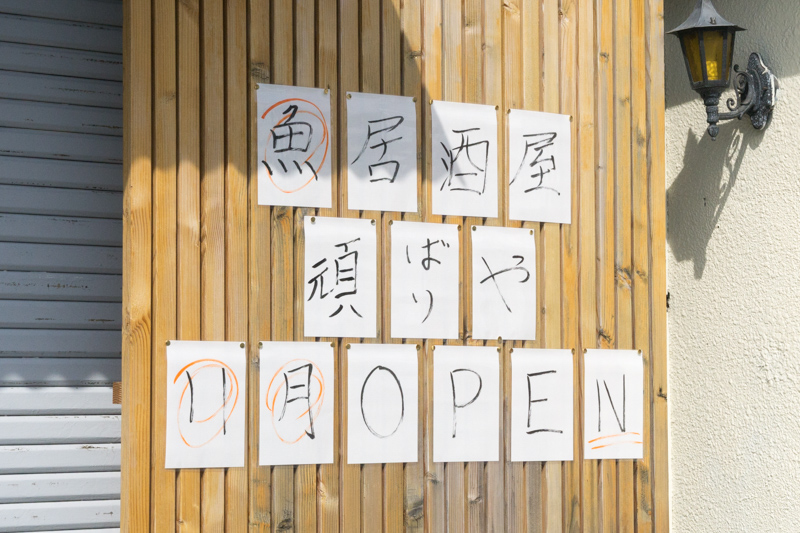 魚居酒屋
頑ばりや
11月OPEN